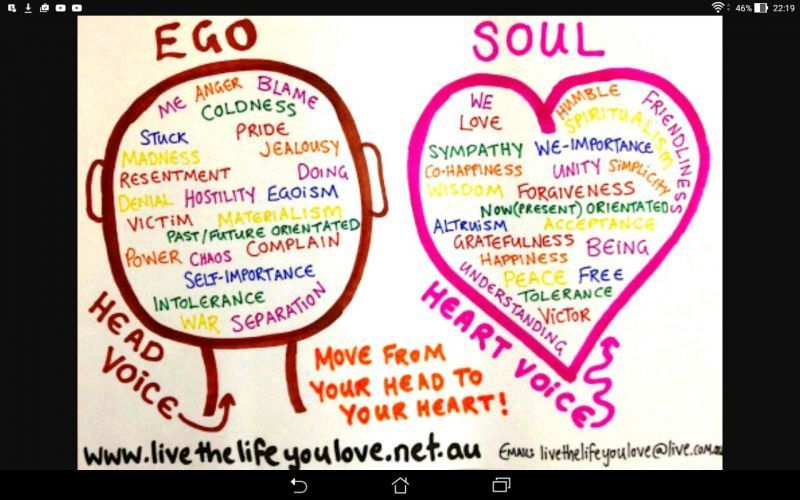 46% 22:19
EGO
ME ANGER BLAME
COLDNESS
STUCK PRIDE
MADNESS JEALOUSY
RESENTMENT DOING
DENIAL HOSTILITY EGOISM
VICTIM MATERIALISM
PAST/FUTURE ORIENTATED
POWER CHAOS COMPLAIN
SELF-IMPORTANCE
INTOLERANCE
WAR SEPARATION
HEAD
VOICE
SOUL
WE HUMBLE FRIENDLINESS
LOVE SPIRITUALISM
SYMPATHY WE-IMPORTANCE
CO-HAPPINESS UNITY SIMPLICITY
WISDOM FORGIVENESS
NOW(PRESENT) ORIENTATED
ALTRUISM ACCEPTANCE
GRATEFULNESS BEING
HAPPINESS
PEACE FREE
UNDERSTANDING TOLERANCE
VICTOR
HEART VOICE
MOVE FROM
YOUR HEAD TO
YOUR HEART!
www.livethelifeyoulove.net.au
EMAIL: livethelifeyoulove@live.com.au